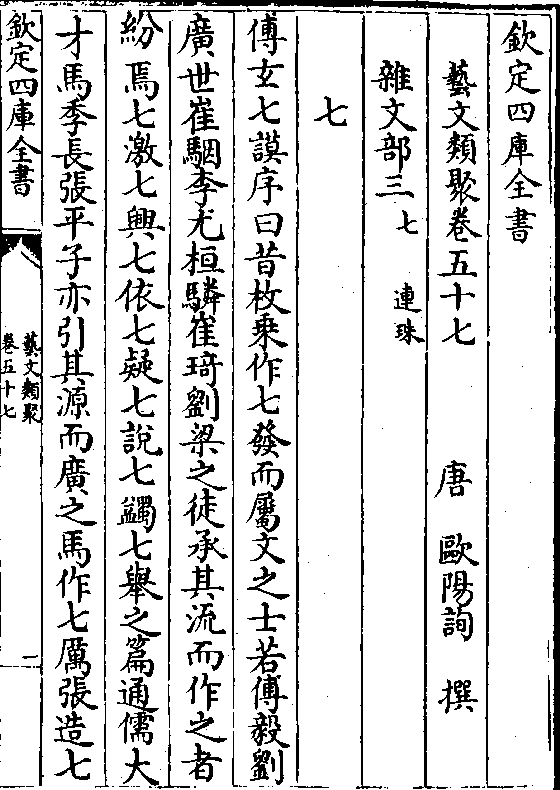 欽定四庫全書
藝文類聚卷五十七 唐 歐陽詢 撰
雜文部三 七 連珠
七
傅玄七謨序曰昔枚乗作七發而屬文之士若傅毅劉
廣世崔駰李尤桓驎崔琦劉梁之徒承其流而作之者
紛焉七激七興七依七疑七説七蠲七舉之篇通儒大
才馬季長張平子亦引其源而廣之馬作七厲張造七
欽定四庫全書
藝文類聚
卷五十七
一